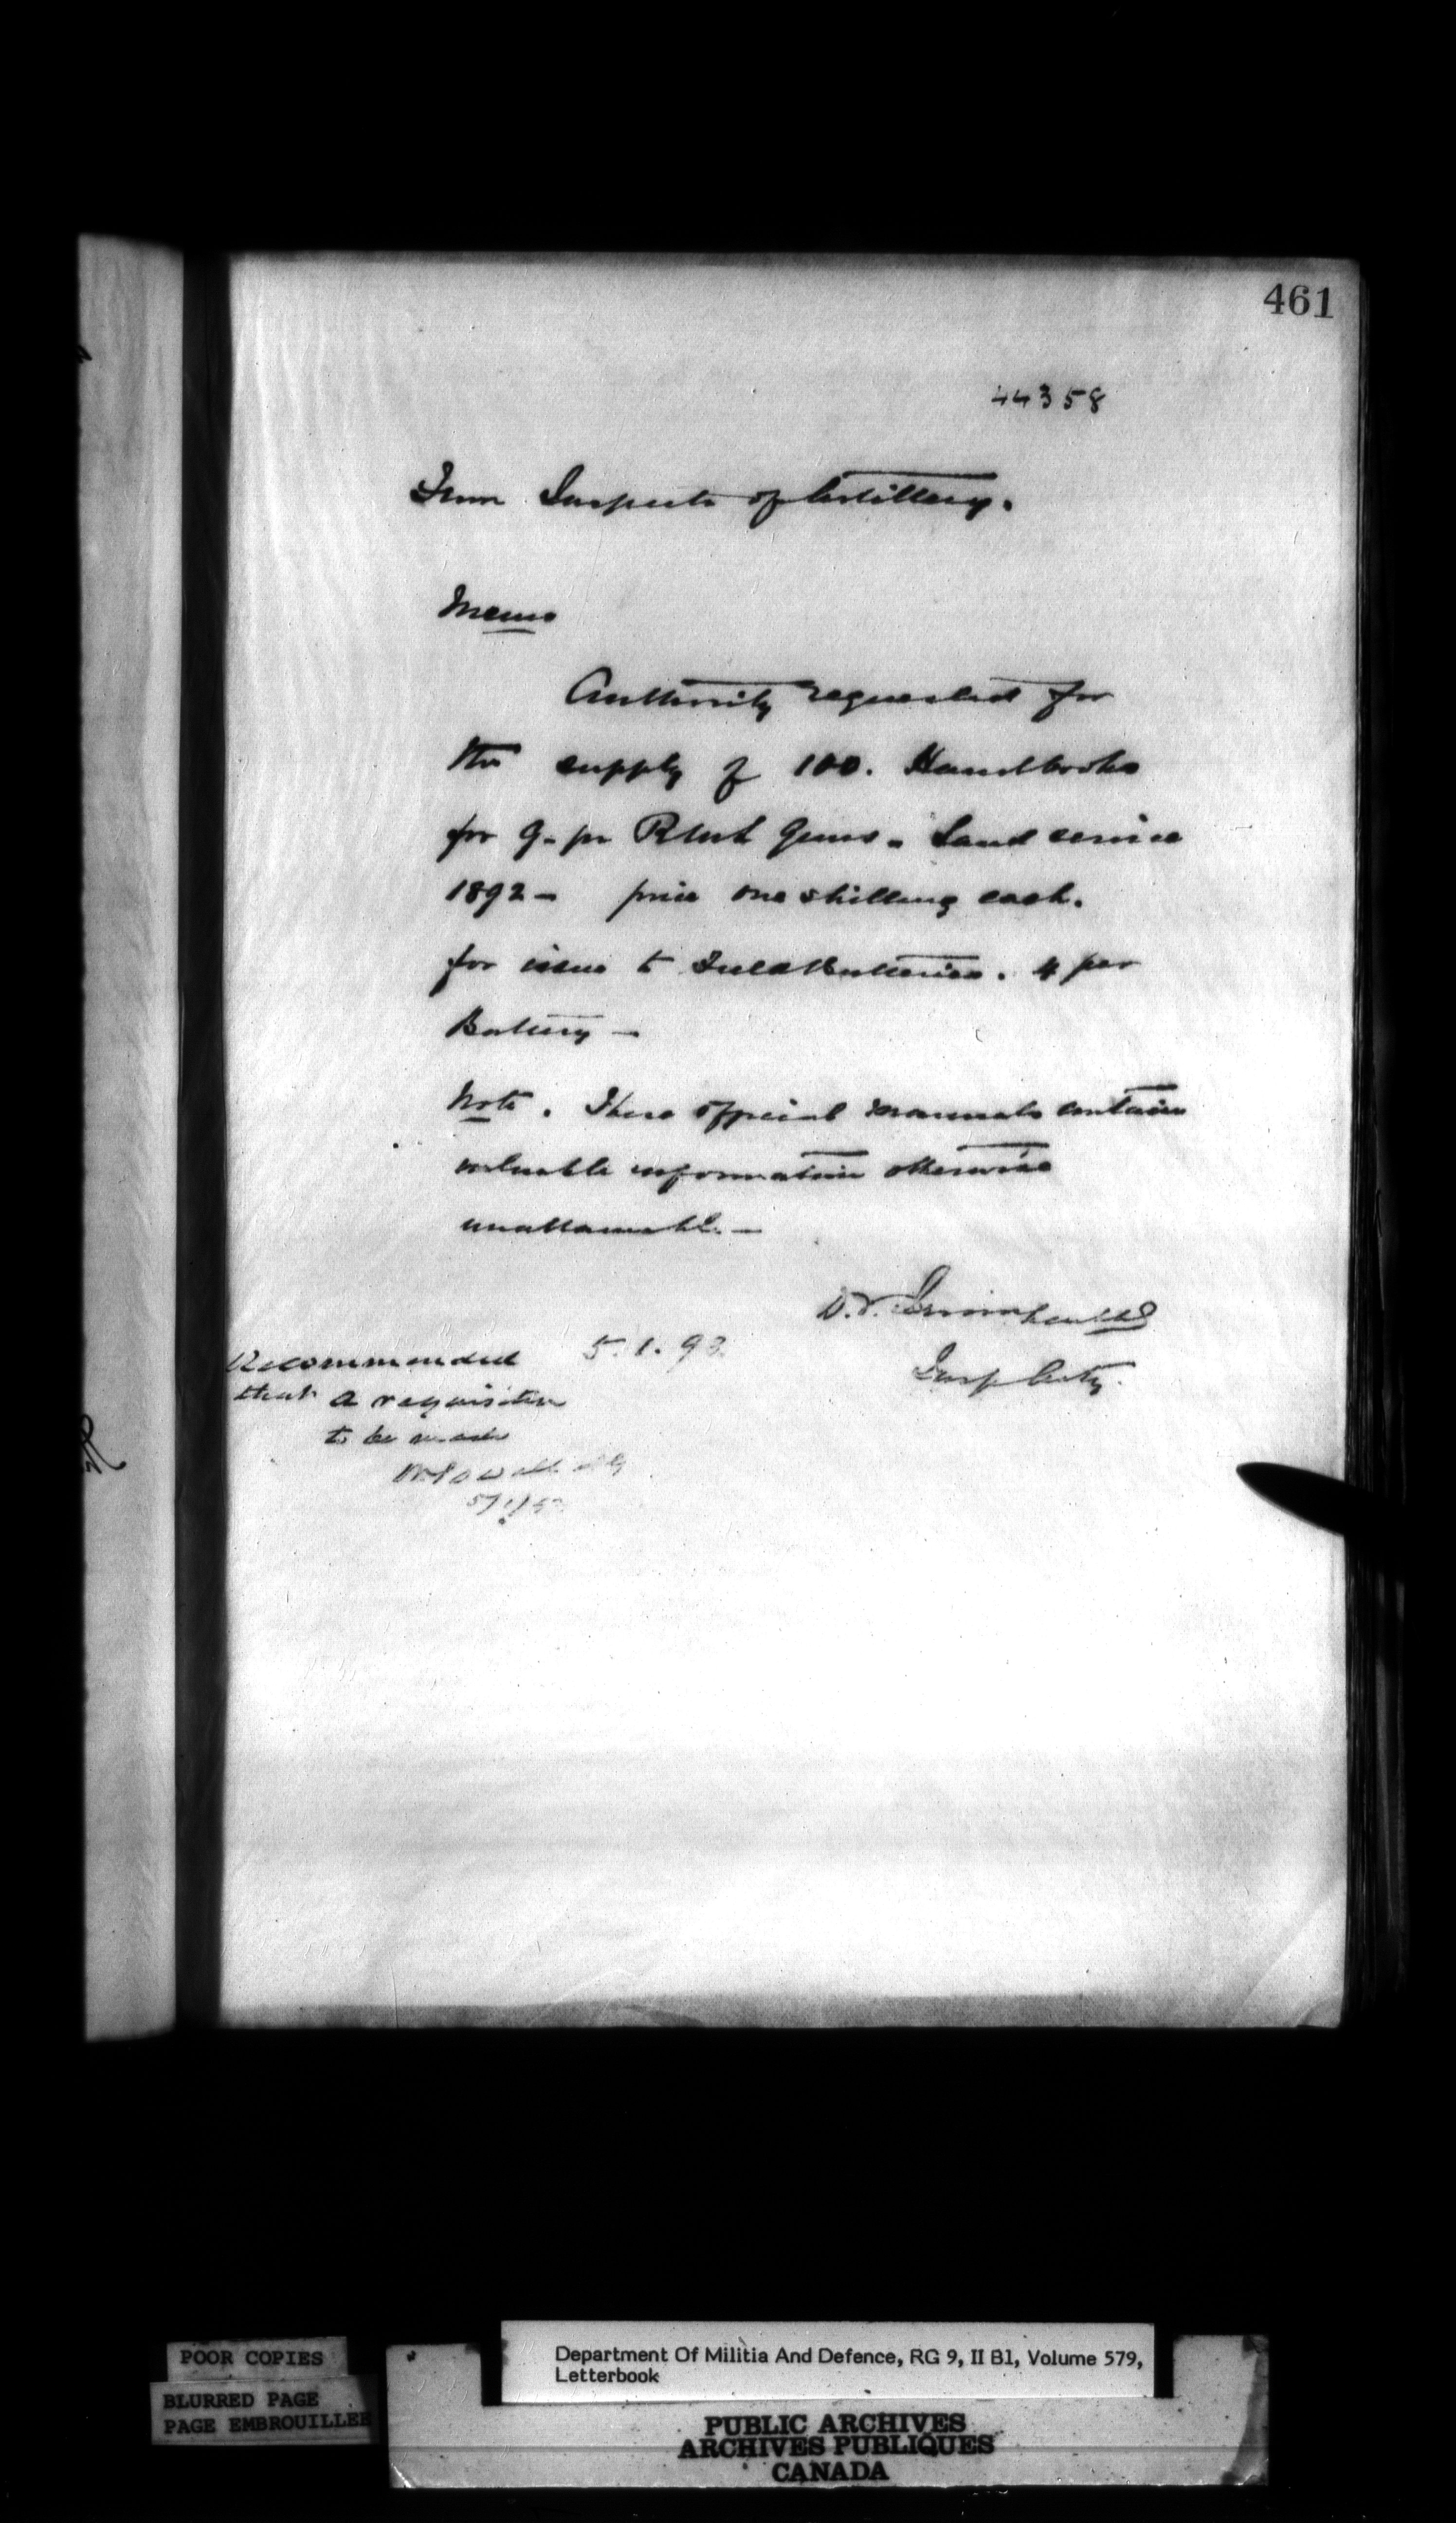 461
44358
From Inspector of Artillery.
Memo
Authority requested for
the supply of 100. Handbooks
for 9-pr R.M.L. Guns. Land service
1892 - price one shilling each.
for issue to Field Batteries. 4 per
Battery -
Note. These official manuals contain
valuable information otherwise
unattainable. -
D.T. Irwin
5.1.93
Insp Arty.
Recommended
that a requisition
to be made
POOR COPIES
BLURRED PAGE
PAGE EMBROUILLEE
Department Of Militia And Defence, RG 9, II B1, Volume 579,
Letterbook
PUBLIC ARCHIVES
ARCHIVES PUBLIQUES
CANADA